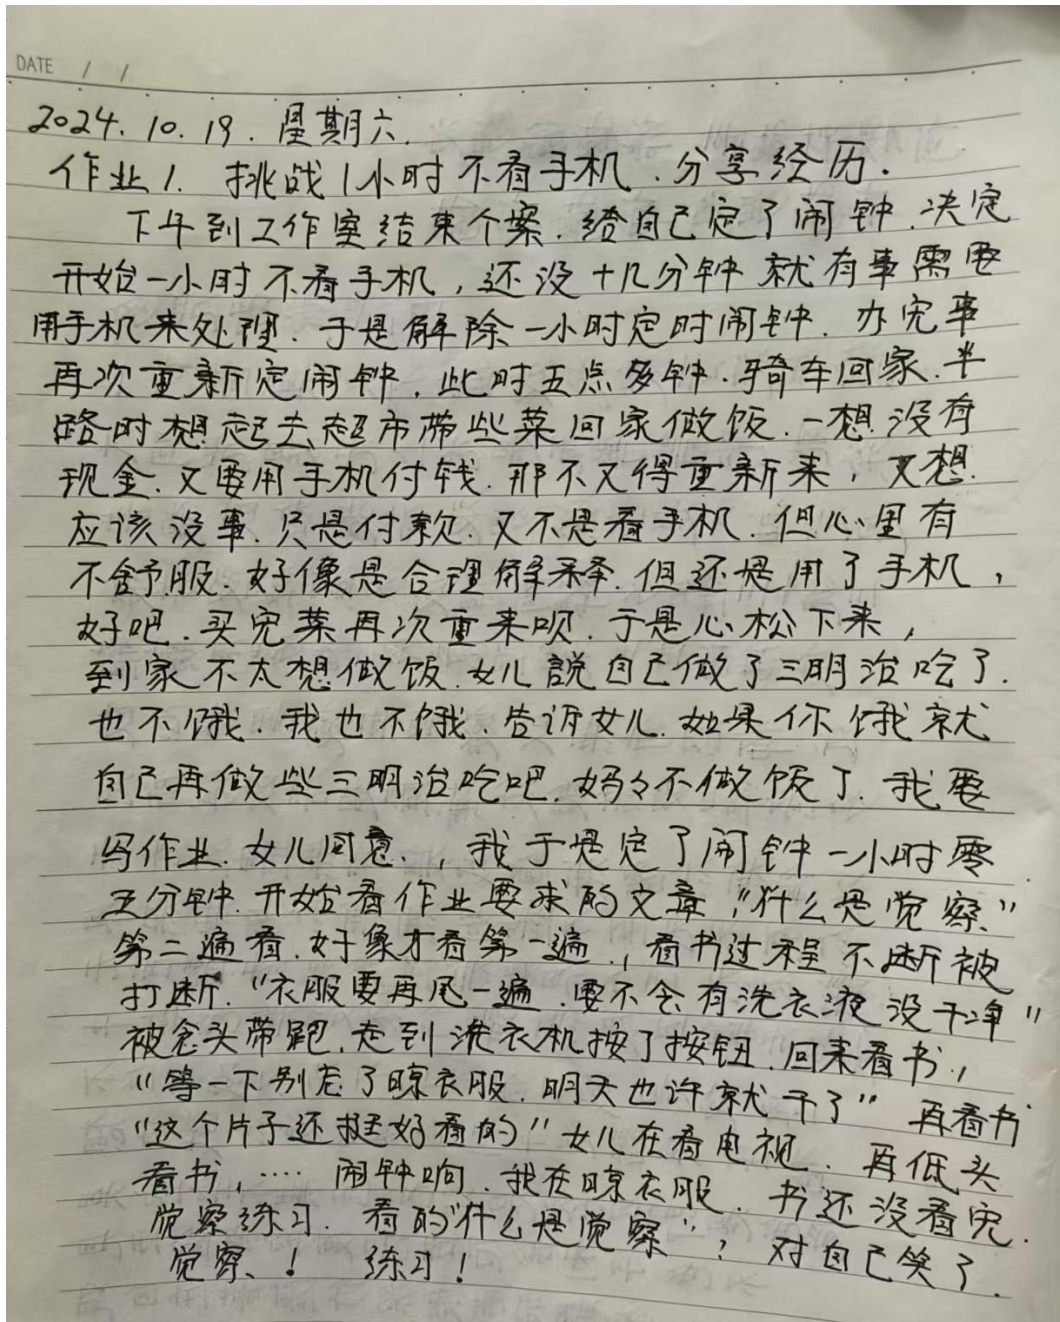 DATE / /
2024. 10. 19. 星期六.
作业1. 挑战1小时不看手机.分享经历.
下午到工作室结束个案.给自己定了闹钟.决定
开始一小时不看手机,还没十几分钟就有事需要
用手机来处理.于是解除一小时定时闹钟.办完事
再次重新定闹钟.此时五点多钟.骑车回家.半
路时想起去超市带些菜回家做饭.一想没有
现金.又要用手机付钱.那不又得重新来,又想
应该没事.只是付款.又不是看手机.但心里有
不舒服.好像是合理解释.但还是用了手机,
好吧.买完菜再次重来呗.于是心松下来,
到家不太想做饭.女儿說自己做了三明治吃了.
也不饿.我也不饿.告诉女儿.如果你饿就
自己再做些三明治吃吧.妈々不做饭了.我要
写作业.女儿同意.,我于是定了闹钟一小时零
五分钟.开始看作业要求的文章,"什么是觉察"
第二遍看.好象才看第一遍.,看书过程不断被
打断."衣服要再甩一遍.要不会有洗衣液没干净"
被念头带跑.走到洗衣机按了按钮.回来看书,
"等一下别忘了晾衣服.明天也许就干了"再看书
"这个片子还挺好看的"女儿在看电视.再低头
看书,....闹钟响.我在晾衣服.书还没看完.
觉察练习.看的"什么是觉察",?对自己笑了.
觉察、! 练习!